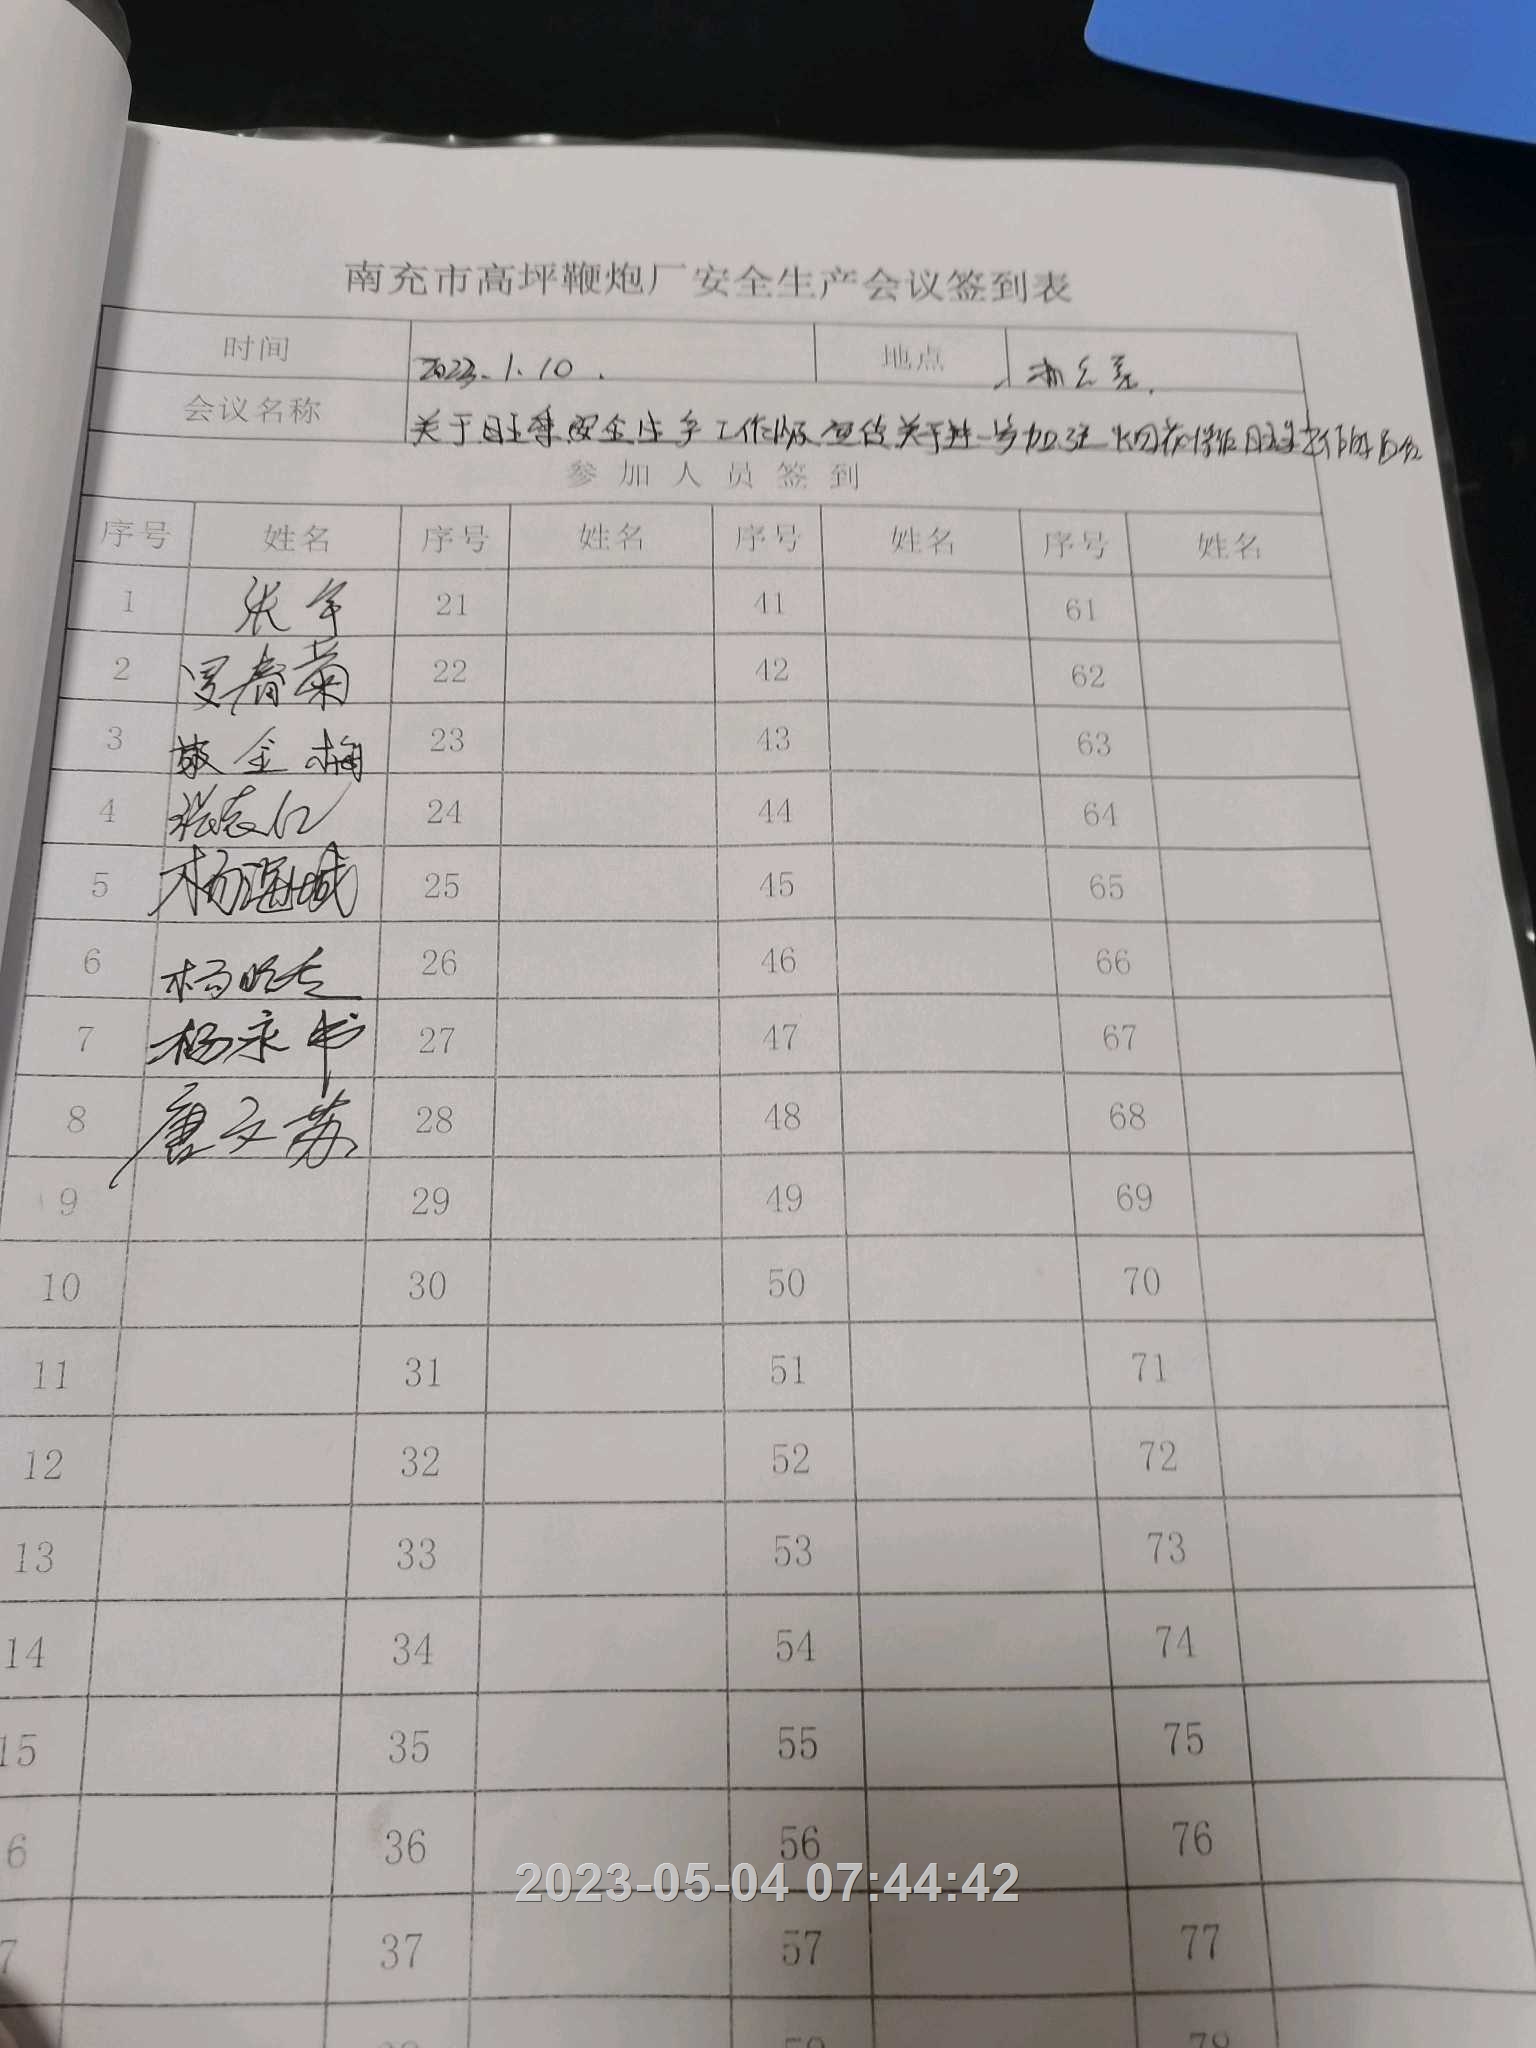 南充市高坪鞭炮厂安全生产会议签到表
时间 2023.1.10. 地点
会议名称 关于旺季安全生产工作 关于进一步加强
参加人员签到
序号 姓名 序号 姓名 序号 姓名 序号 姓名
1 张 21 41 61
2 春菊 22 42 62
3 敬金梅 23 43 63
4 张志仁 24 44 64
5 杨 城 25 45 65
6 杨 26 46 66
7 杨永书 27 47 67
8 唐文苏 28 48 68
9 29 49 69
10 30 50 70
11 31 51 71
12 32 52 72
13 33 53 73
14 34 54 74
15 35 55 75
6 36 56 76
2023-05-04 07:44:42
7 37 57 77